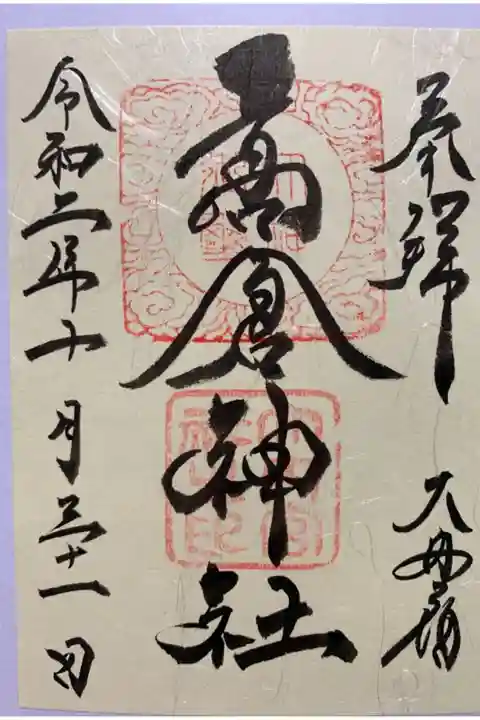 奉拝
高倉神社
令和二年十月三十一日